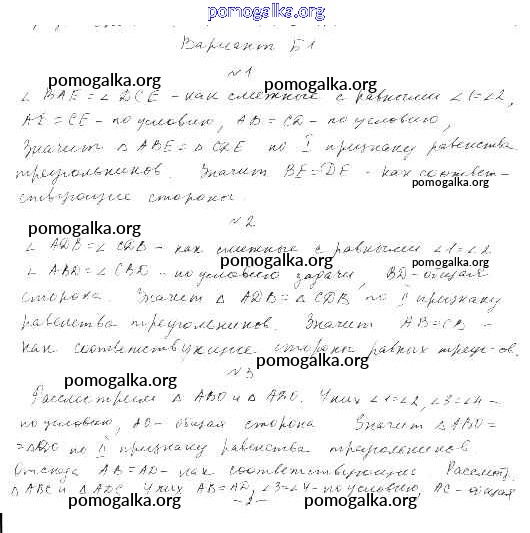 pomogalka.org
Вариант Б1
№1
pomogalka.org pomogalka.org
∠ BAE = ∠ DCE - как смежные с равными ∠1=∠2,
AE = CE - по условию, AB = CD - по условию,
Значит △ ABE = △ CDE по I признаку равенства
треугольников. Значит BE = DE - как соответ-
pomogalka.org
ствующие стороны.
№2
pomogalka.org
∠ ADB = ∠ CDB - как смежные с равными ∠1=∠2
∠ ABD = ∠ CBD - по условию задачи, BD - общая
pomogalka.org
сторона. Значит △ ADB = △ CDB по II признаку
равенства треугольников. Значит AB = CB -
как соответствующие стороны равных треуг-ов.
pomogalka.org
№3
pomogalka.org
Рассмотрим △ ABO и △ ADO. У них ∠1=∠2, ∠3=∠4 -
по условию, AO - общая сторона Значит △ ABO =
= △ADO по II признаку равенства треугольников
pomogalka.org
Отсюда AB = AD - как соответствующие Рассмотр.
△ ABC и △ ADC У них AB = AD, ∠3=∠4 - по условию, AC - общая
pomogalka.org pomogalka.org
- 2 -